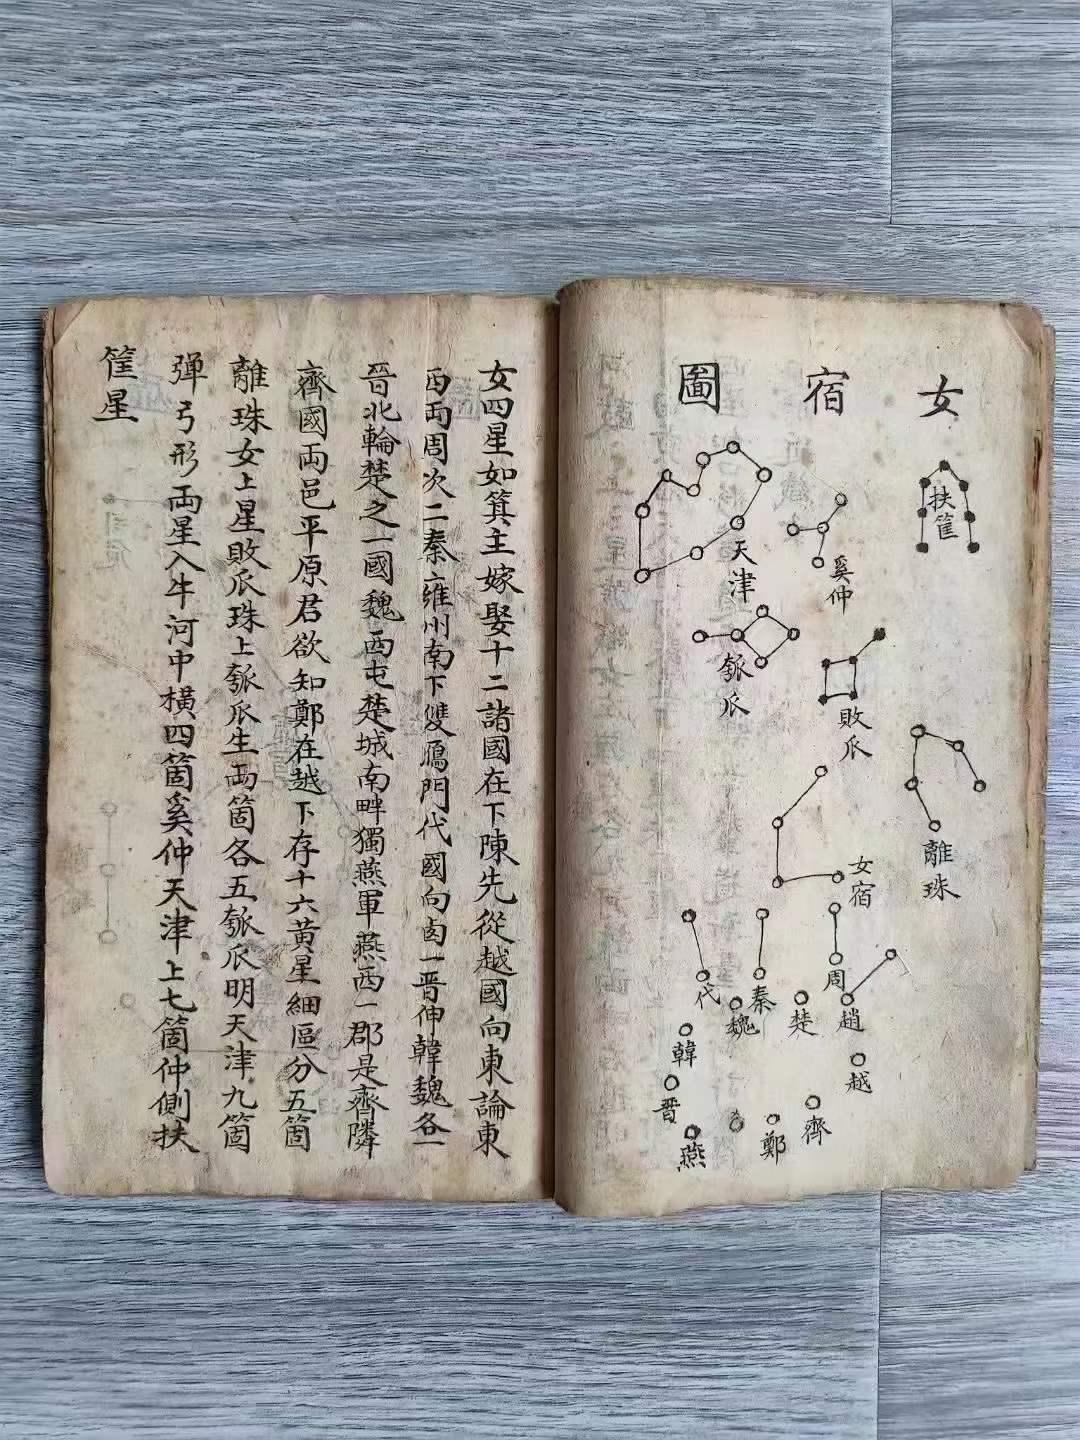 女宿圖
扶筐
奚仲
天津
瓠瓜
敗瓜
離珠
女宿
周
秦
代
趙
楚
魏
韓
越
晉
齊
鄭
燕
女四星如箕主嫁娶十二諸國在下陳先從越國向東論東
西兩周次二秦雍州南下雙鴈門代國向西一晉伸韓魏各一
晉北輪楚之一國魏西屯楚城南畔獨燕軍燕西一郡是齊隣
齊國兩邑平原君欲知鄭在越下存十六黃星細區分五箇
離珠女上星敗瓜珠上瓠瓜生兩箇各五瓠瓜明天津九箇
彈弓形兩星入牛河中橫四箇奚仲天津上七箇仲側扶
筐星